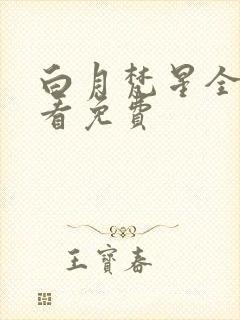 白月梵星全
看免費
王寳春